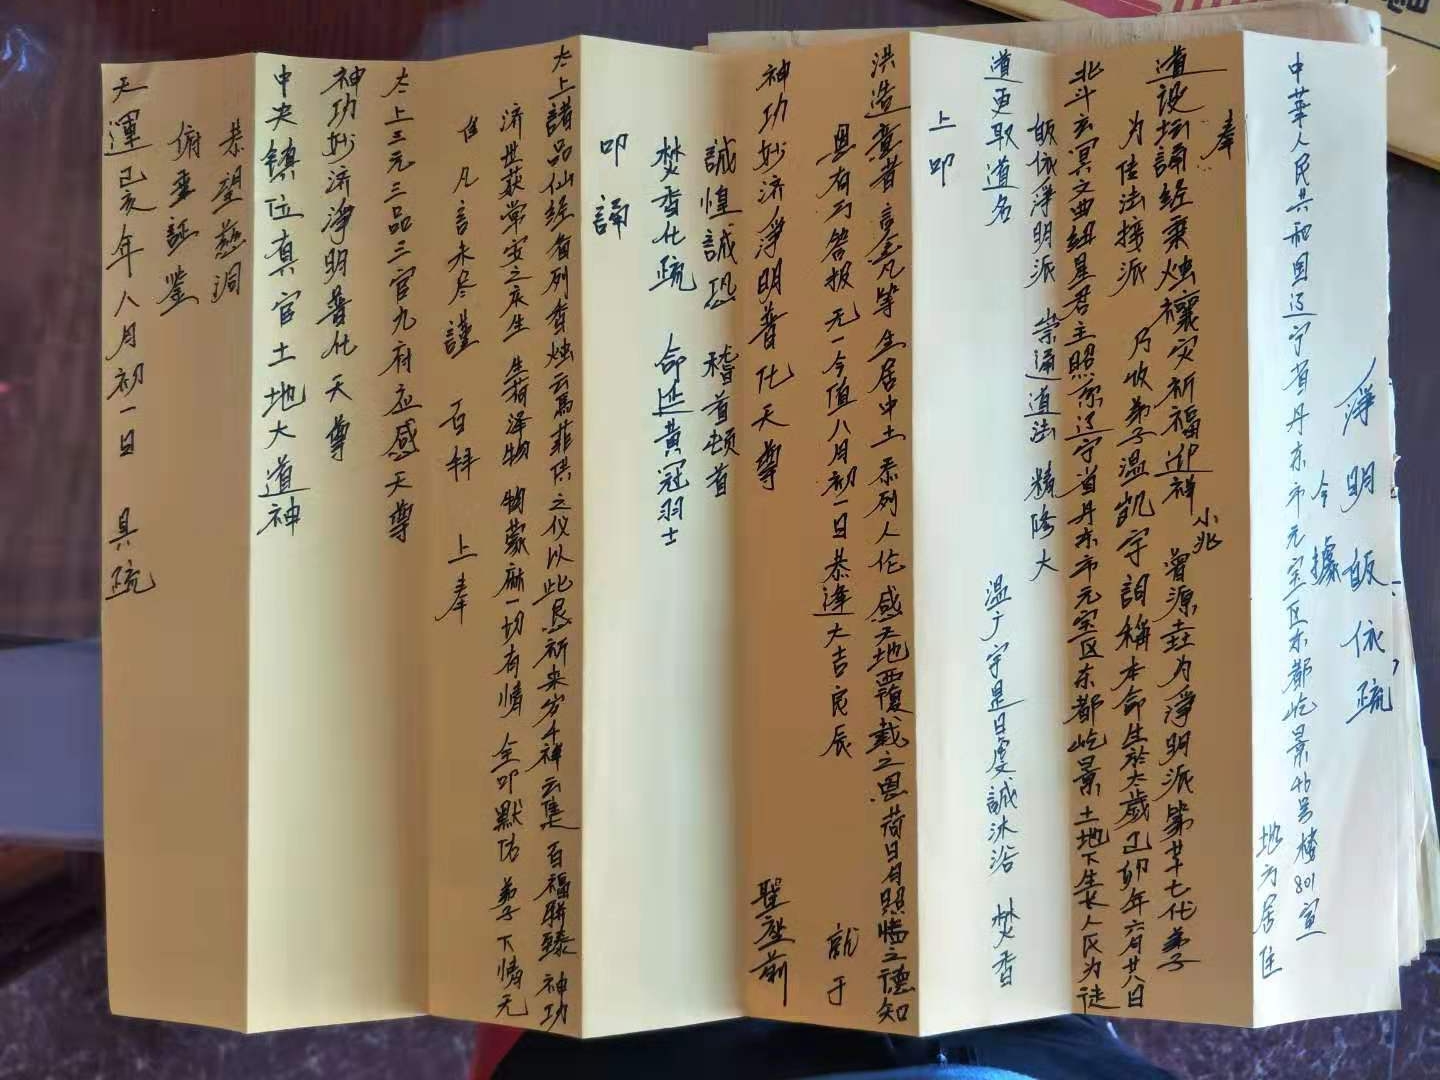 淨明皈依疏
今據
中華人民共和国辽宁省丹东市元宝区东都屹景46号楼801室
地方居住
奉
道設坛誦经秉烛禳灾祈福迎祥
小兆
为淨明派第廿七代弟子
为传法接派
乃收弟子温凯宇詞稱本命生於太歲己卯年六月廿八日
北斗玄冥文曲纽星君主照系辽宁省丹东市元宝区东都屹景土地下生长人民为徒
皈依淨明派
崇通道法
精修大
道更取道名
温广宇是日虔誠沐浴
焚香
上叩
洪造意者言念凡等生居中土忝列人伦感天地覆載之恩荷日月照临之德知
恩有万答报无一今值八月初一日恭逢大吉良辰
就于
神功妙济淨明普化天尊
聖座前
誠惶誠恐
稽首顿首
焚香化疏
命延黃冠羽士
叩誦
太上諸品仙经俻列香烛云馬菲供之仪以此恳祈来岁千祥云集
百福駢臻
神功
济世获常安之
生荷泽物
物蒙庥一切有情
全叩默佑
弟子下情无
任凡言未尽謹
百拜
上奉
太上三元三品三官九府应感天尊
神功妙济淨明普化天尊
中央镇位真官土地大道神
恭望慈洞
俯垂証鉴
天運己亥年八月初一日
具疏